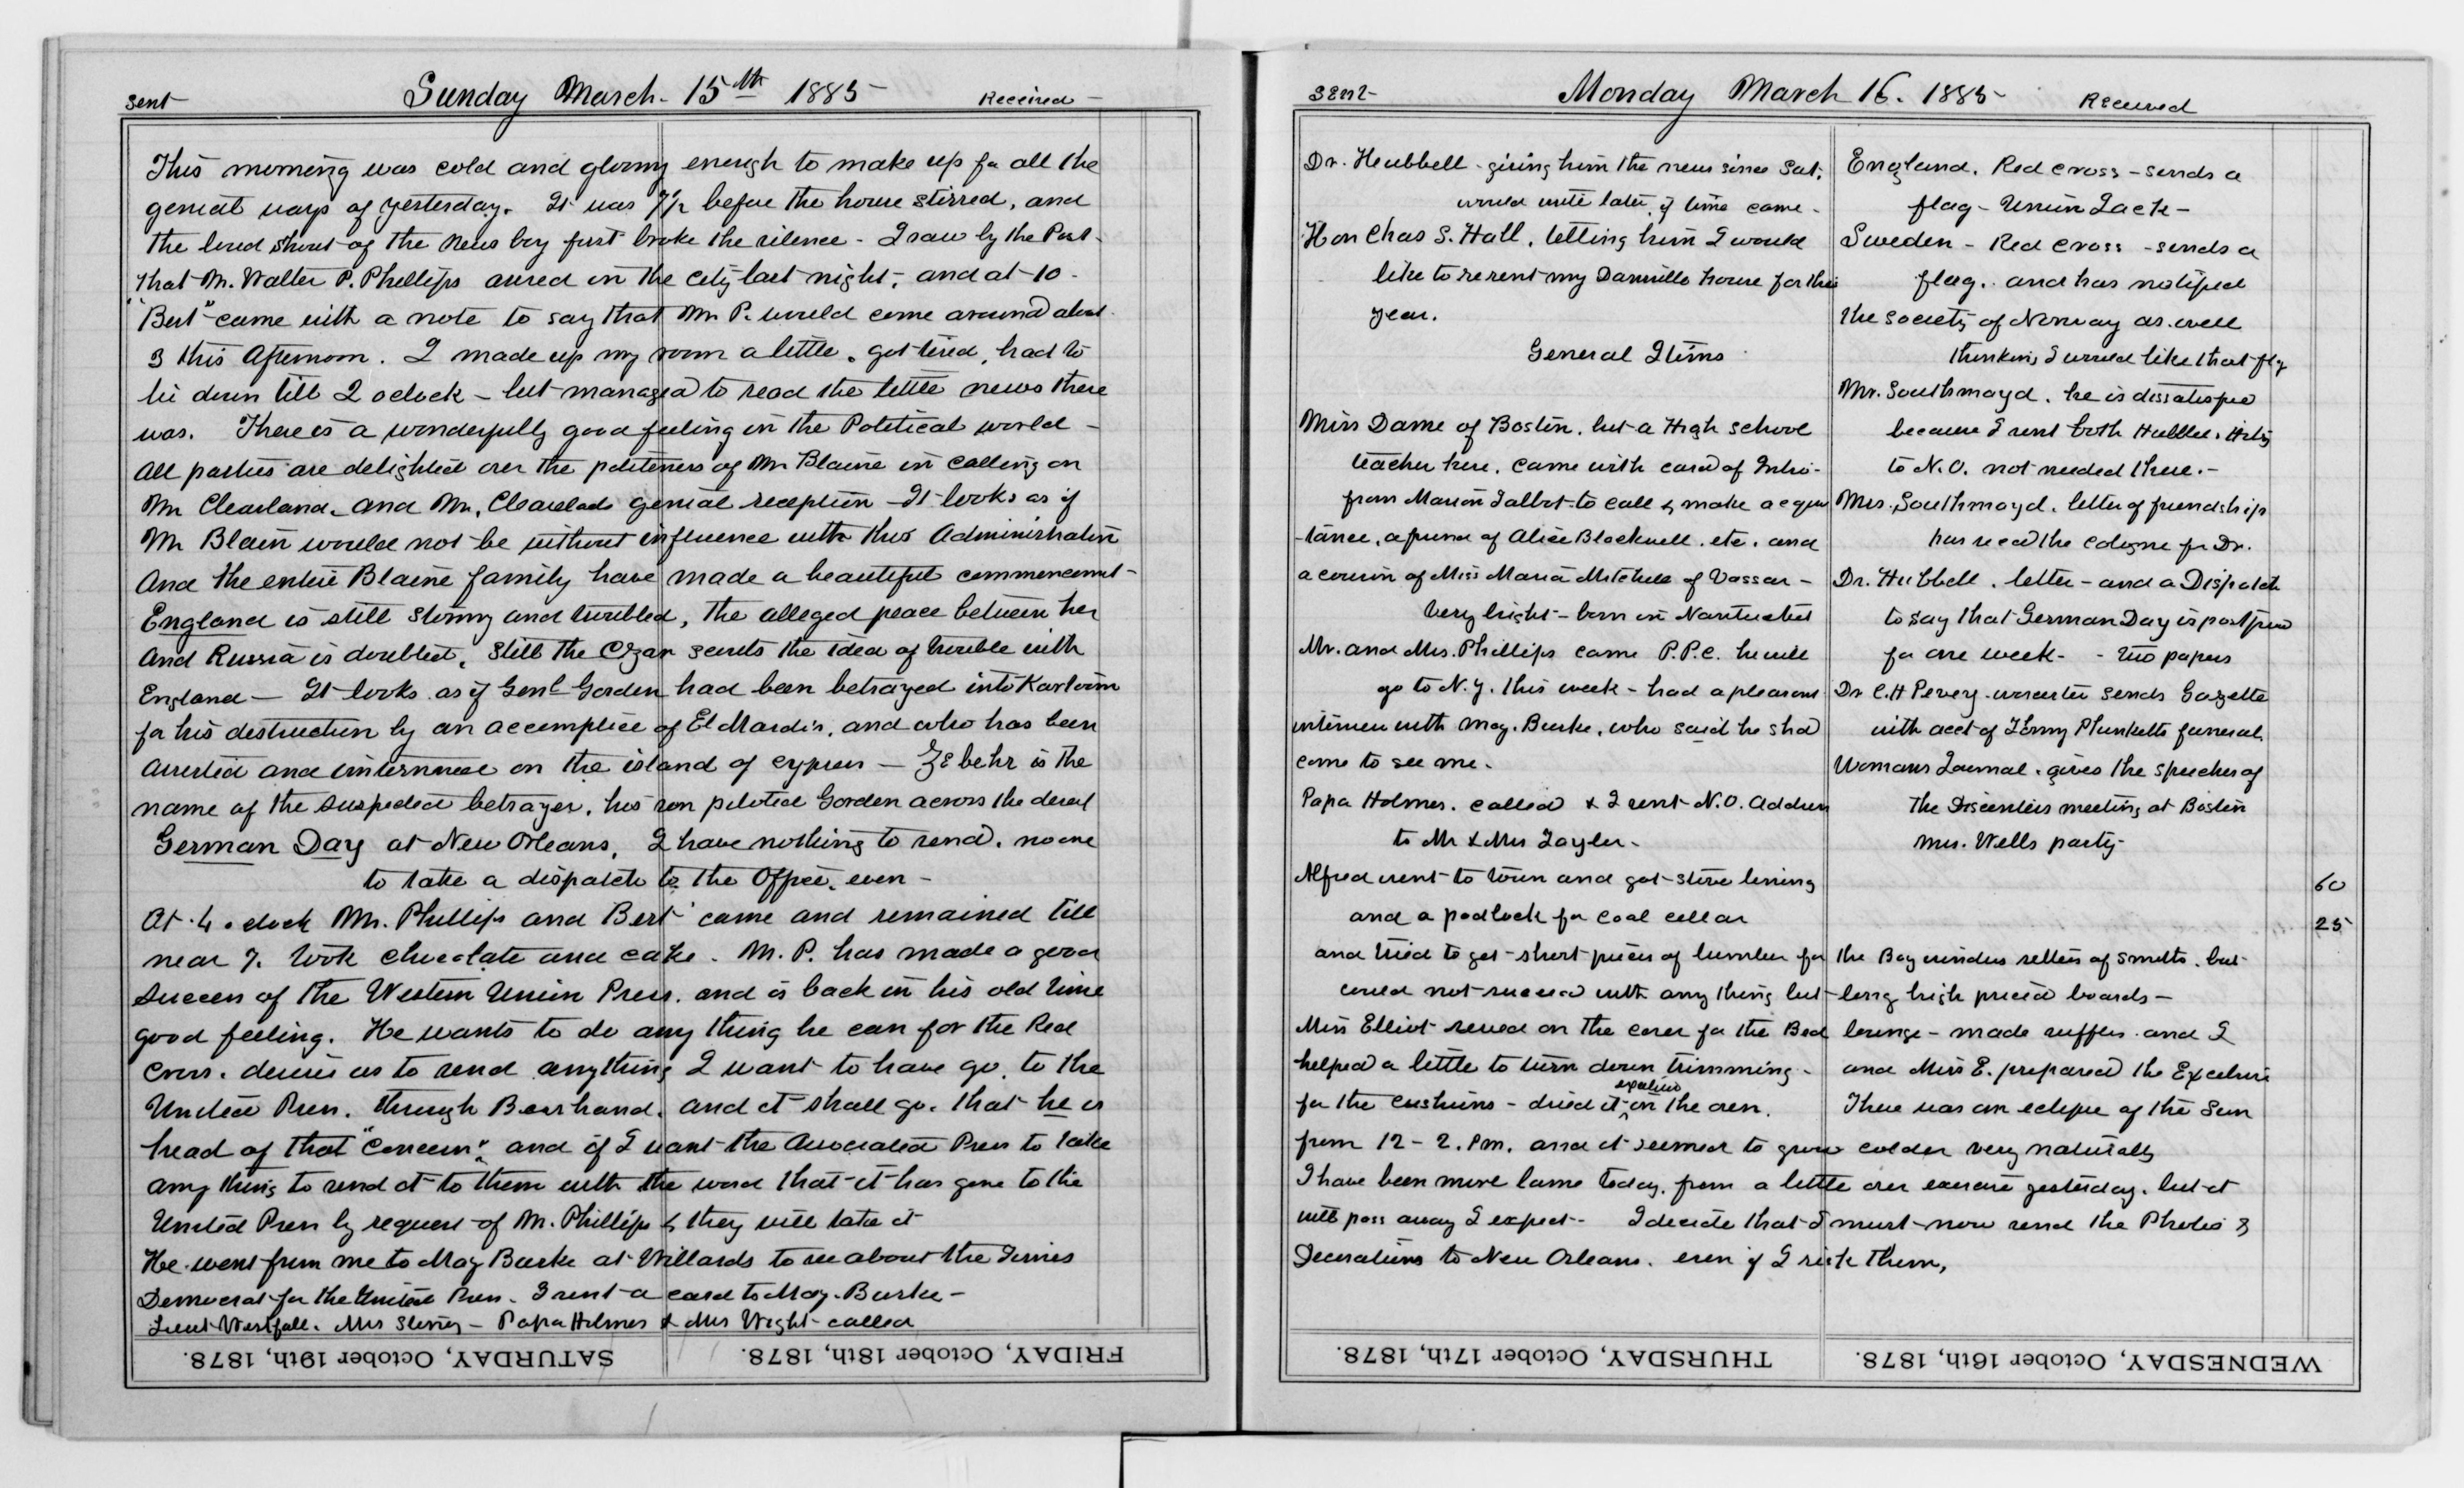 Sent Sunday March. 15th 1885 Received
This morning was cold and gloomy enough to make up for all the
genial rays of yesterday. It was 7½ before the house stirred, and
the loud shout of the news boy first broke the silence - I saw by the Post.
that Mr. Walter P. Phillips arived in the city last night, and at 10 -
"Bert" came with a note to say that Mr P. would come around about
3 this Afternoon. I made up my room a little. got tired, had to
lie down till 2 oclock - but managed to read the little news there
was. There is a wonderfully good feeling in the Political world -
all parties are delighted over the politeness of Mr Blaine in calling on
Mr Clevland. and Mr. Clevelads genial reception - It looks as if
Mr Blain would not be without influence with this Administration
And the entire Blaine family have made a beautiful commencemt -
England is still stormy and troubled, the alleged peace between her
and Russia is doubted, still the Czar scouts the idea of trouble with
England - It looks as if Genl Gorden had been betrayed into Kartoom
for his destruction by an accomplice of El Mardis, and who has been
arrested and on the island of Cypres - Zebehr is the
name of the suspected betrayer, his son piloted Gorden across the desert
German Day at New Orleans, I have nothing to send. no one
to take a dispatch to the Office, even -
At 4 oclock Mr. Phillips and Bert came and remained till
near 7. took chocolate and cake. Mr. P. has made a good
success of the Western Union Press. and is back in his old time
good feeling. He wants to do any thing he can for the Red
Cross. desires us to send anything I want to have go, to the
United Press. through Beerhand. and it shall go. that he is
head of that "Concern". and if I want the Associated Press to take
any thing to send it to them with the word that it has gone to the
United Press by request of Mr. Phillips & they will take it
He went from me to Maj Burke at Willards to see about the Times
Democrat for the United Press. I sent a card to Maj. Burke -
Lieut Westfall. Mrs - Papa Holmes & Mrs Wight called
SATURDAY, October 19th, 1878. FRIDAY, October 18th, 1878.
Sent Monday March 16. 1885 Received
Dr. Hubbell - giving him the news since Sat.
would write later, if time came -
Hon Chas S. Hall, letting him I would
like to re rent my Dansville house for this
year.
General Items
Miss Dame of Boston. but a High school
teacher here, came with card of Intro-
from Marion Talbot to call & make acquin
-tance, a friend of Alice Blackwell. etc. and
a cousin of Miss Maria Mitchell of Vassar -
Very bright - born in Nantucket
Mr. and Mrs. Phillips came P.P.C. he will
go to N.Y. this week - had a pleasant
interview with Maj. Burke, who said he shd
come to see me.
Papa Holmes. called & I sent N.O. Address
to Mr & Mrs Tayler -
Alfred went to town and got stove lining
and a padlock for coal cellar
England. Red cross - sends a
flag - Union Jack -
Sweden - Red cross - sends a
flag. and has notified
the society of Norway as well
thinking I would like that flg
Mr. Southmayd. he is dissatisfied
because I sent both Hubbell &
to N.O. not needed there. -
Mrs. Southmayd. letter of friendship
has recd the cologne for Dr.
Dr. Hubbell. letter - and a Dispatch
to say that German Day is postpond
for one week - - two papers
Dr C.H Pevey. worcester sends Gazette
with acct of Tommy Plunketts funeral.
Womans Journal. gives the speeches of
the meeting at Boston
Mrs. Wells party -
60
25
and tried to get short pieces of lumber for the Bay window of smelts. but
could not suceed with any thing but long high priced boards -
Miss Elliot sewed on the cover for the Bed lounge - made ruffles. and I
helped a little to turn down trimming - and Miss E. prepared the Excelsior
for the cushions - dried it excelsior in the oven. There was an eclipse of the Sun
from 12 - 2. Pm. and it seemed to grow colder very naturally
I have been more lame today. from a little over exercise yesterday. but it
will pass away I expect - I decide that I must now send the Photos &
Decorations to New Orleans. even if I risk them,
THURSDAY, October 17th, 1878. WEDNESDAY, October 16th, 1878.